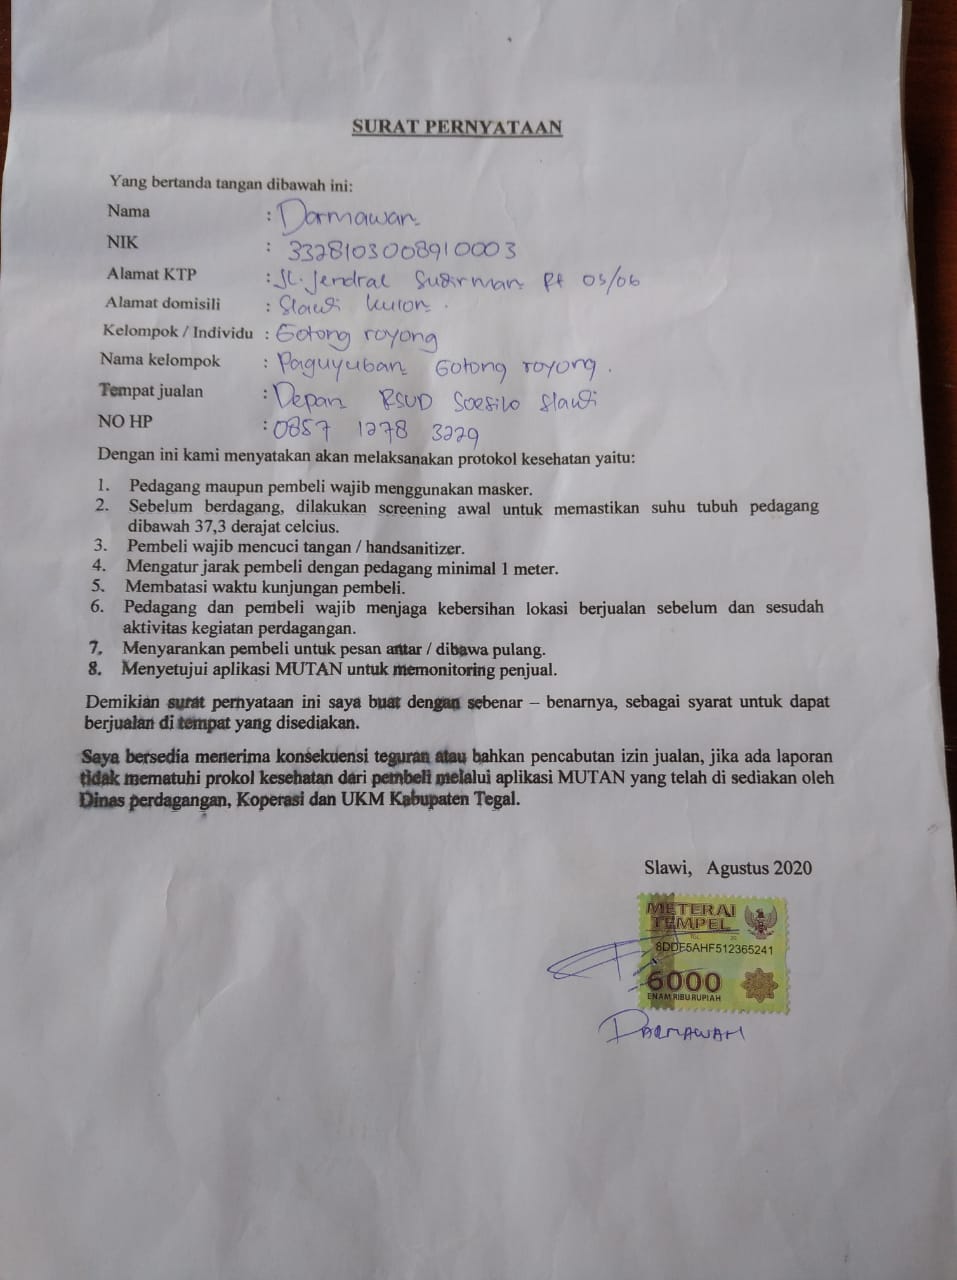 SURAT PERNYATAAN
Yang bertanda tangan dibawah ini:
Nama : Darmawan
NIK : 3328103008910003
Alamat KTP : Jl. Jendral Sudirman Rt 05/06
Alamat domisili : Slawi kulon.
Kelompok / Individu : Gotong royong
Nama kelompok : Paguyuban Gotong royong.
Tempat jualan : Depan RSUD Soesilo Slawi
NO HP : 0857 1278 3229
Dengan ini kami menyatakan akan melaksanakan protokol kesehatan yaitu:
1. Pedagang maupun pembeli wajib menggunakan masker.
2. Sebelum berdagang, dilakukan screening awal untuk memastikan suhu tubuh pedagang
dibawah 37,3 derajat celcius.
3. Pembeli wajib mencuci tangan / handsanitizer.
4. Mengatur jarak pembeli dengan pedagang minimal 1 meter.
5. Membatasi waktu kunjungan pembeli.
6. Pedagang dan pembeli wajib menjaga kebersihan lokasi berjualan sebelum dan sesudah
aktivitas kegiatan perdagangan.
7. Menyarankan pembeli untuk pesan antar / dibawa pulang.
8. Menyetujui aplikasi MUTAN untuk memonitoring penjual.
Demikian surat pernyataan ini saya buat dengan sebenar – benarnya, sebagai syarat untuk dapat
berjualan di tempat yang disediakan.
Saya bersedia menerima konsekuensi teguran atau bahkan pencabutan izin jualan, jika ada laporan
tidak mematuhi prokol kesehatan dari pembeli melalui aplikasi MUTAN yang telah di sediakan oleh
Dinas perdagangan, Koperasi dan UKM Kabupaten Tegal.
Slawi, Agustus 2020
METERAI
TEMPEL
8DDF5AHF512365241
6000
ENAM RIBU RUPIAH
DARMAWAN